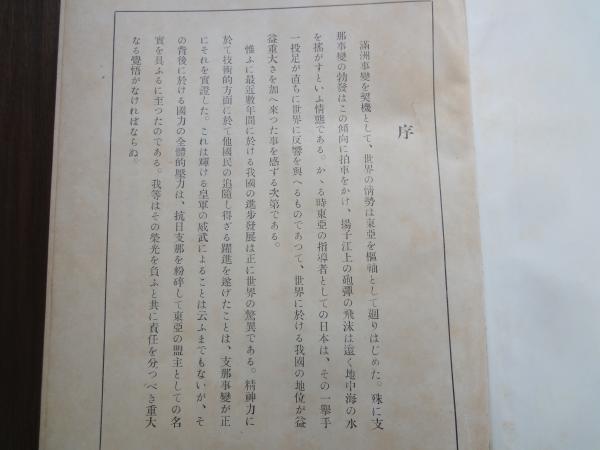 序
滿洲事變を契機として、世界の情勢は東亞を樞軸として廻りはじめた。殊に支
那事變の勃發はこの傾向に拍車をかけ、揚子江上の砲彈の飛沫は遠く地中海の水
を搖がすといふ情態である。かゝる時東亞の指導者としての日本は、その一擧手
一投足が直ちに世界に反響を與へるものであつて、世界に於ける我國の地位が益
益重大さを加へ來つた事を感ずる次第である。
惟ふに最近數年間に於ける我國の進步發展は正に世界の驚異である。精神力に
於て技術的方面に於て他國民の追隨し得ざる躍進を遂げたことは、支那事變が正
にそれを實證した。これは輝ける皇軍の威武によることは云ふまでもないが、そ
の背後に於ける國力の全體的壓力は、抗日支那を粉碎して東亞の盟主としての名
實を具ふるに至つたのである。我等はその榮光を負ふと共に責任を分つべき重大
なる覺悟がなければならぬ。